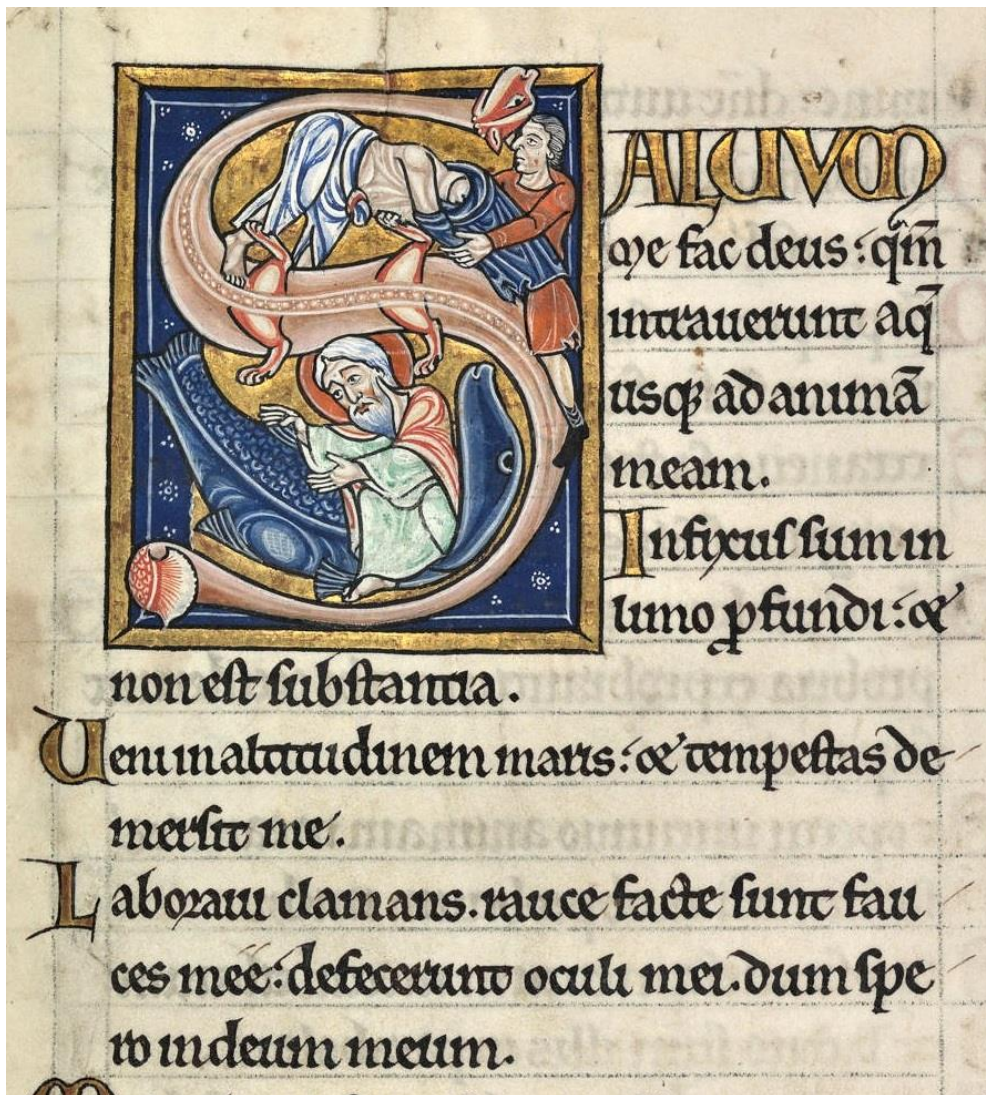 SALUUM
me fac deus: qm̄
intrauerunt aq̄
usq; ad animā
meam.
Infixus sum in
limo ꝓfundi: &
non est substantia.
Ueni in altitudinem maris: & tempestas de
mersit me.
Laboraui clamans. rauce facte sunt fau
ces meę: defecerunt oculi mei. dum spe
ro in deum meum.